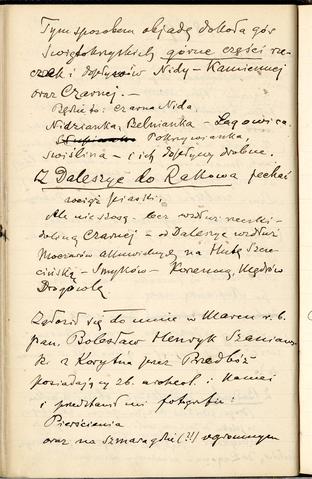 Tym sposobem objadę dokoła gór
Świętokrzyskich górne części rze-
czek i dopływów Nidy – Kamiennej
oraz Czarnej. –
Będzie to: Czarna Nida,
Nidzianka, Belnianka – Łagowica.
Pokrzywianka,
Świślina – i ich dopływy drobne.
Z Daleszyc do Rakowa jechać
wciąż piaski.
Ale nie szosą – lecz wzdłuż rzeczki
doliną Czarnej – z Daleszyc wzdłuż
Moczarów alluwialnych na Hutę Szcze-
cińską – Smyków – Korzenną, Wędrów
Drogowlę
Zgłosił się do mnie w Marcu r. b.
pan Bolesław Henryk Szaniaw-
ski z Korytna przez Przedbórz
posiadający zb. archeol. i kamei
i przedstawił mi fotografie:
Pierścienia
oraz na szmaragdzie (?!) ogromnym